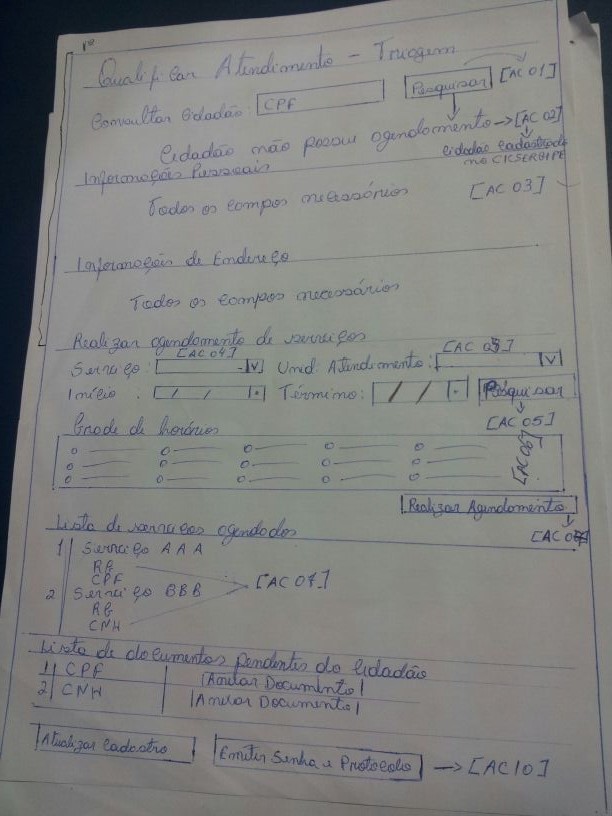 1º
Qualificar Atendimento - Triagem
Consultar Cidadão: CPF Pesquisar [AC 01]
Cidadão não possui agendamento → [AC 02]
Cidadão cadastrado
no CICSERGIPE
Informações Pessoais
Todos os campos necessários [AC 03]
Informações de Endereço
Todos os campos necessários
Realizar agendamento de serviços
[AC 04] [AC 05]
Serviço: V Unid. Atendimento: V
Início: / / Término: / / Pesquisar
Grade de horários [AC 05]
[AC 06]
Realizar Agendamento
Lista de serviços agendados
1 Serviço AAA
RG
CPF [AC 07]
2 Serviço BBB
RG
CNH
Lista de documentos pendentes do Cidadão
1 CPF |Anexar Documento|
2 CNH |Anexar Documento|
Atualizar Cadastro Emitir Senha e Protocolo → [AC10]